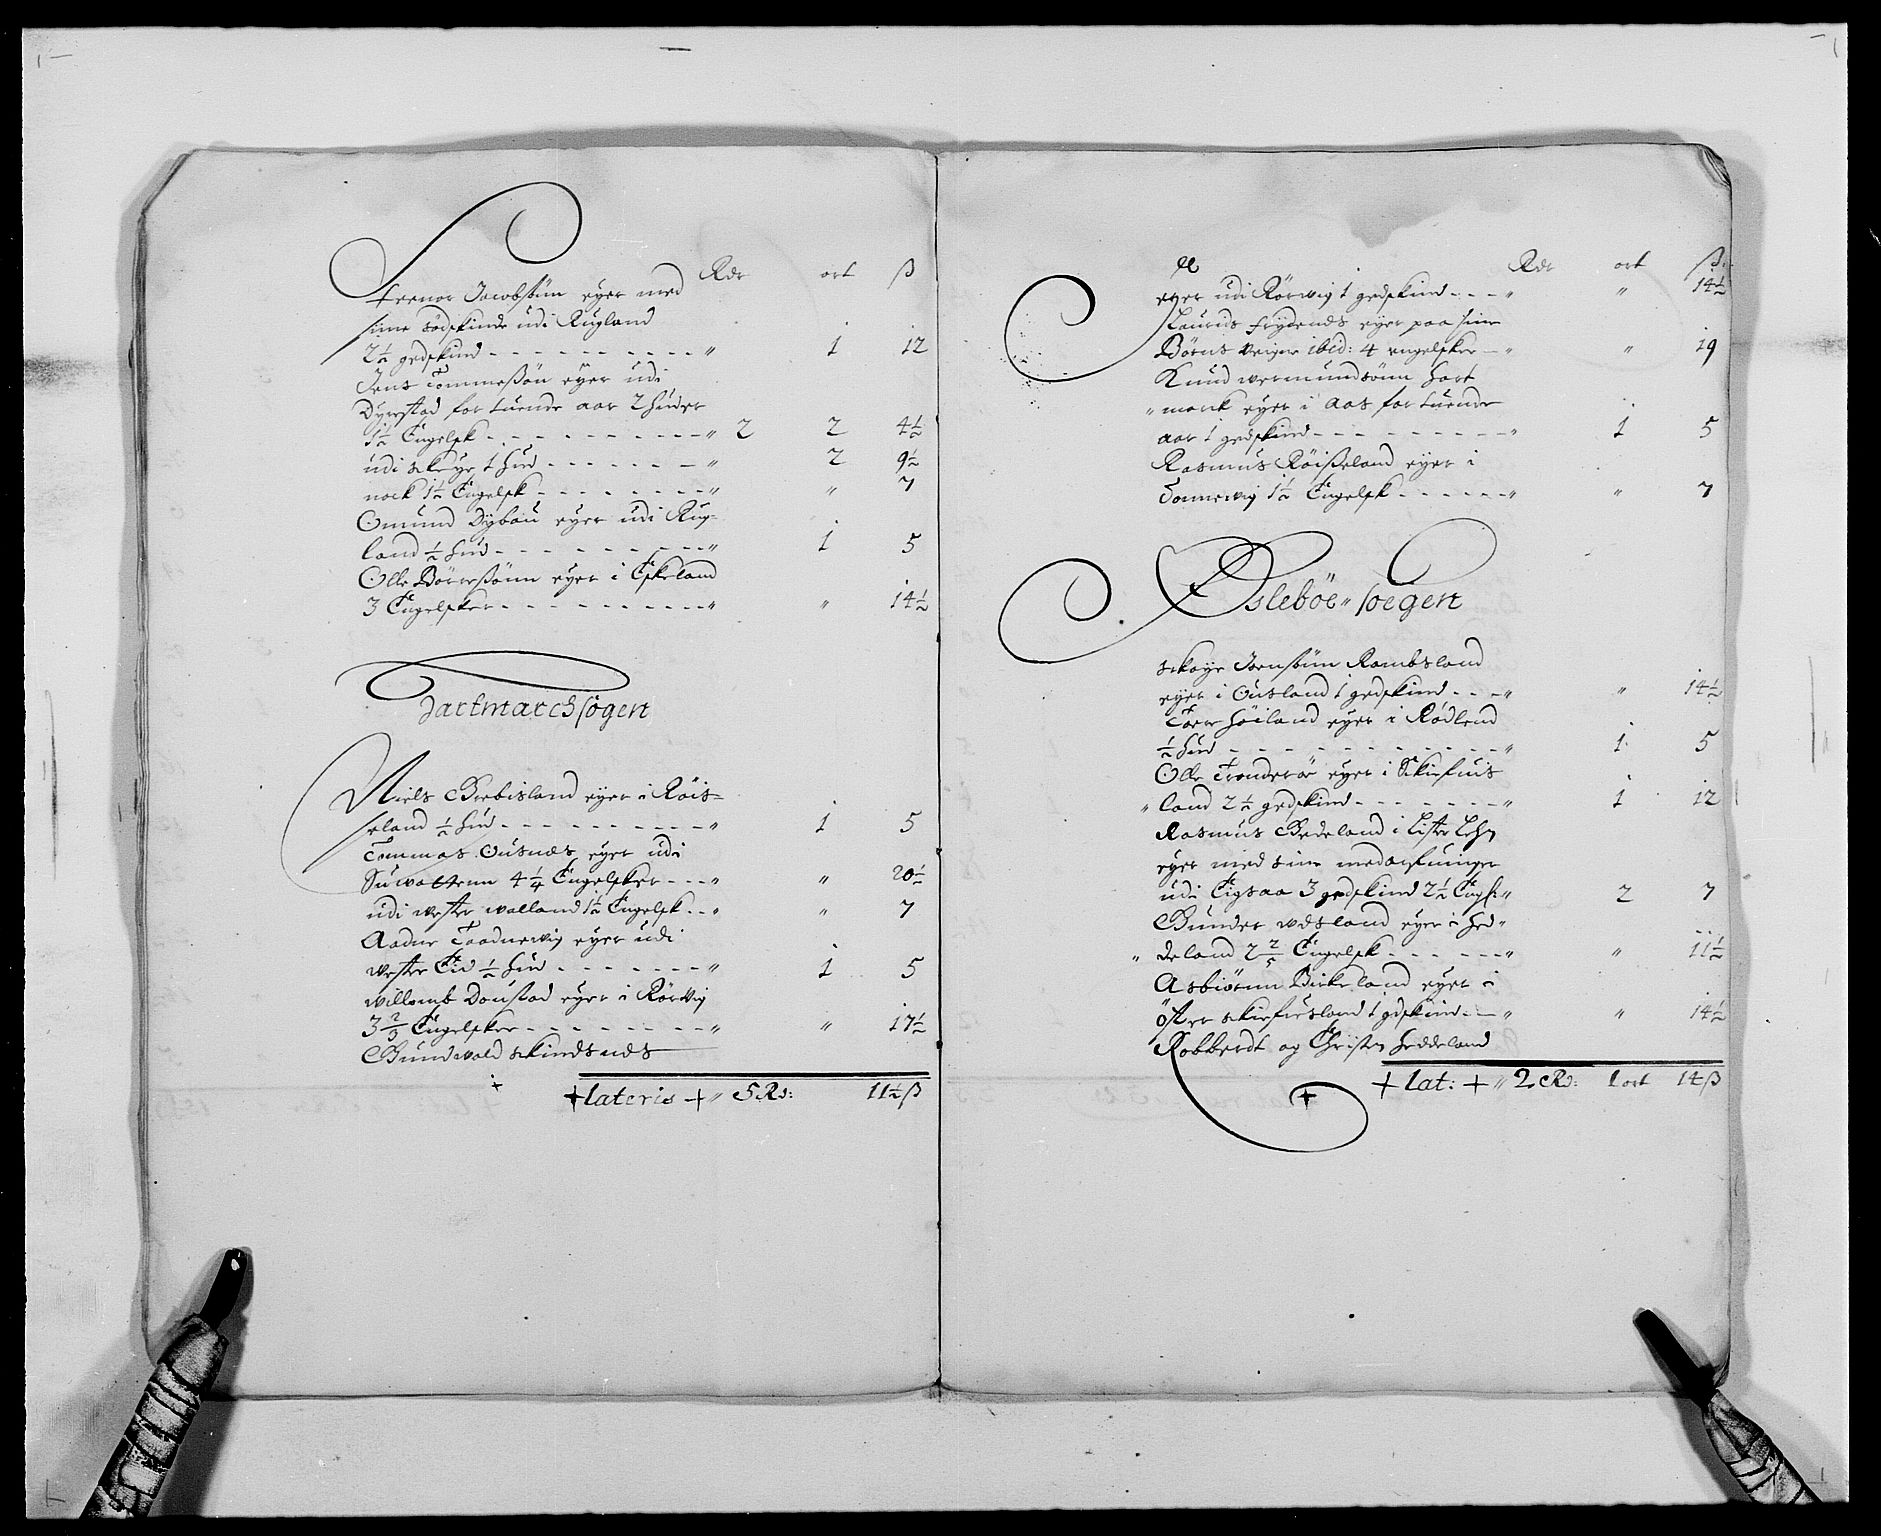 Rdr ort ß
Trenor Jacobßøn eyer med
sine Sødskinde udi Rugland
2½ gedskind - - - - - - - - - - " 1 12
Jens Tommeßøn eyer udi
Dyrestad for tuende aar 2 huder
1½ Engelsk - - - - - - - - - - " 2 2 4½
udi Skeye 1 hud - - - - - - - " 2 9½
nock 1½ Engelsk - - - - - - - - " " 7
Omund Dybou eyer udi Rug-
land ½ hud - - - - - - - - - - " 1 5
Olle Børreßønn eyer i Eskeland
3 Engelsker - - - - - - - - - - " " 14½
Hartmarch sogen
Niels Birbisland eyer i Røis-
seland ½ hud - - - - - - - - - - " 1 5
Tommas Ousnæs eyer udi
Suvattenn 4¼ Engelsker - - - " " 20½
udi vester walland 1½ Engelsk - - " " 7
Aadne Taadnevig eyer udi
vester Eid ½ hud - - - - - - - " 1 5
Willomb Doustad eyer i Rørvig
3⅔ Engelsker - - - - - - - - " " 17½
Gundwald Skindsnes
+ lateris + " 5 Rd: 11½ ß
Rdr ort ß
eyer udi Rørvig 1 gedskind - - - " " 14½
Laurids Frydends eyer paa sine
Børns Veigne ibid: 4 engelsker - " " 19
Knud Wermundsønn Hart
" marck eyer i Aas for tuende
aar 1 gedskind - - - - - - - - - " 1 5
Rasmus Røißeland eyer i
Tonnevig 1½ Engelsk - - - - - - " " 7
Øslebøe " soegen
Skoye Jenßønn Rambsland
eyer i Ousland 1 gedskind - - - " " 14½
Tore Høiland eyer i Rødland
½ hud - - - - - - - - - - - - " 1 5
Olle Tronderøe eyer i Skiefuis
" land 2½ gedskind - - - - - - - " 1 12
Rasmus Bedeland i Lister Lehn
eyer med sine medarfuinger
udi Eigsaa 3 gedskind 2½ Engs: " 2 7
Gunder Udsland eyer i Hed "
" deland 2⅖ Engelsk - - - - - - " " 11½
Asbiørnn Birkeland eyer i
Øster Skiefuesland 1 gdskind - - " " 14½
Robberdt og Christen Heddeland
+ lat: + " 2 Rd: 1 ort 14 ß